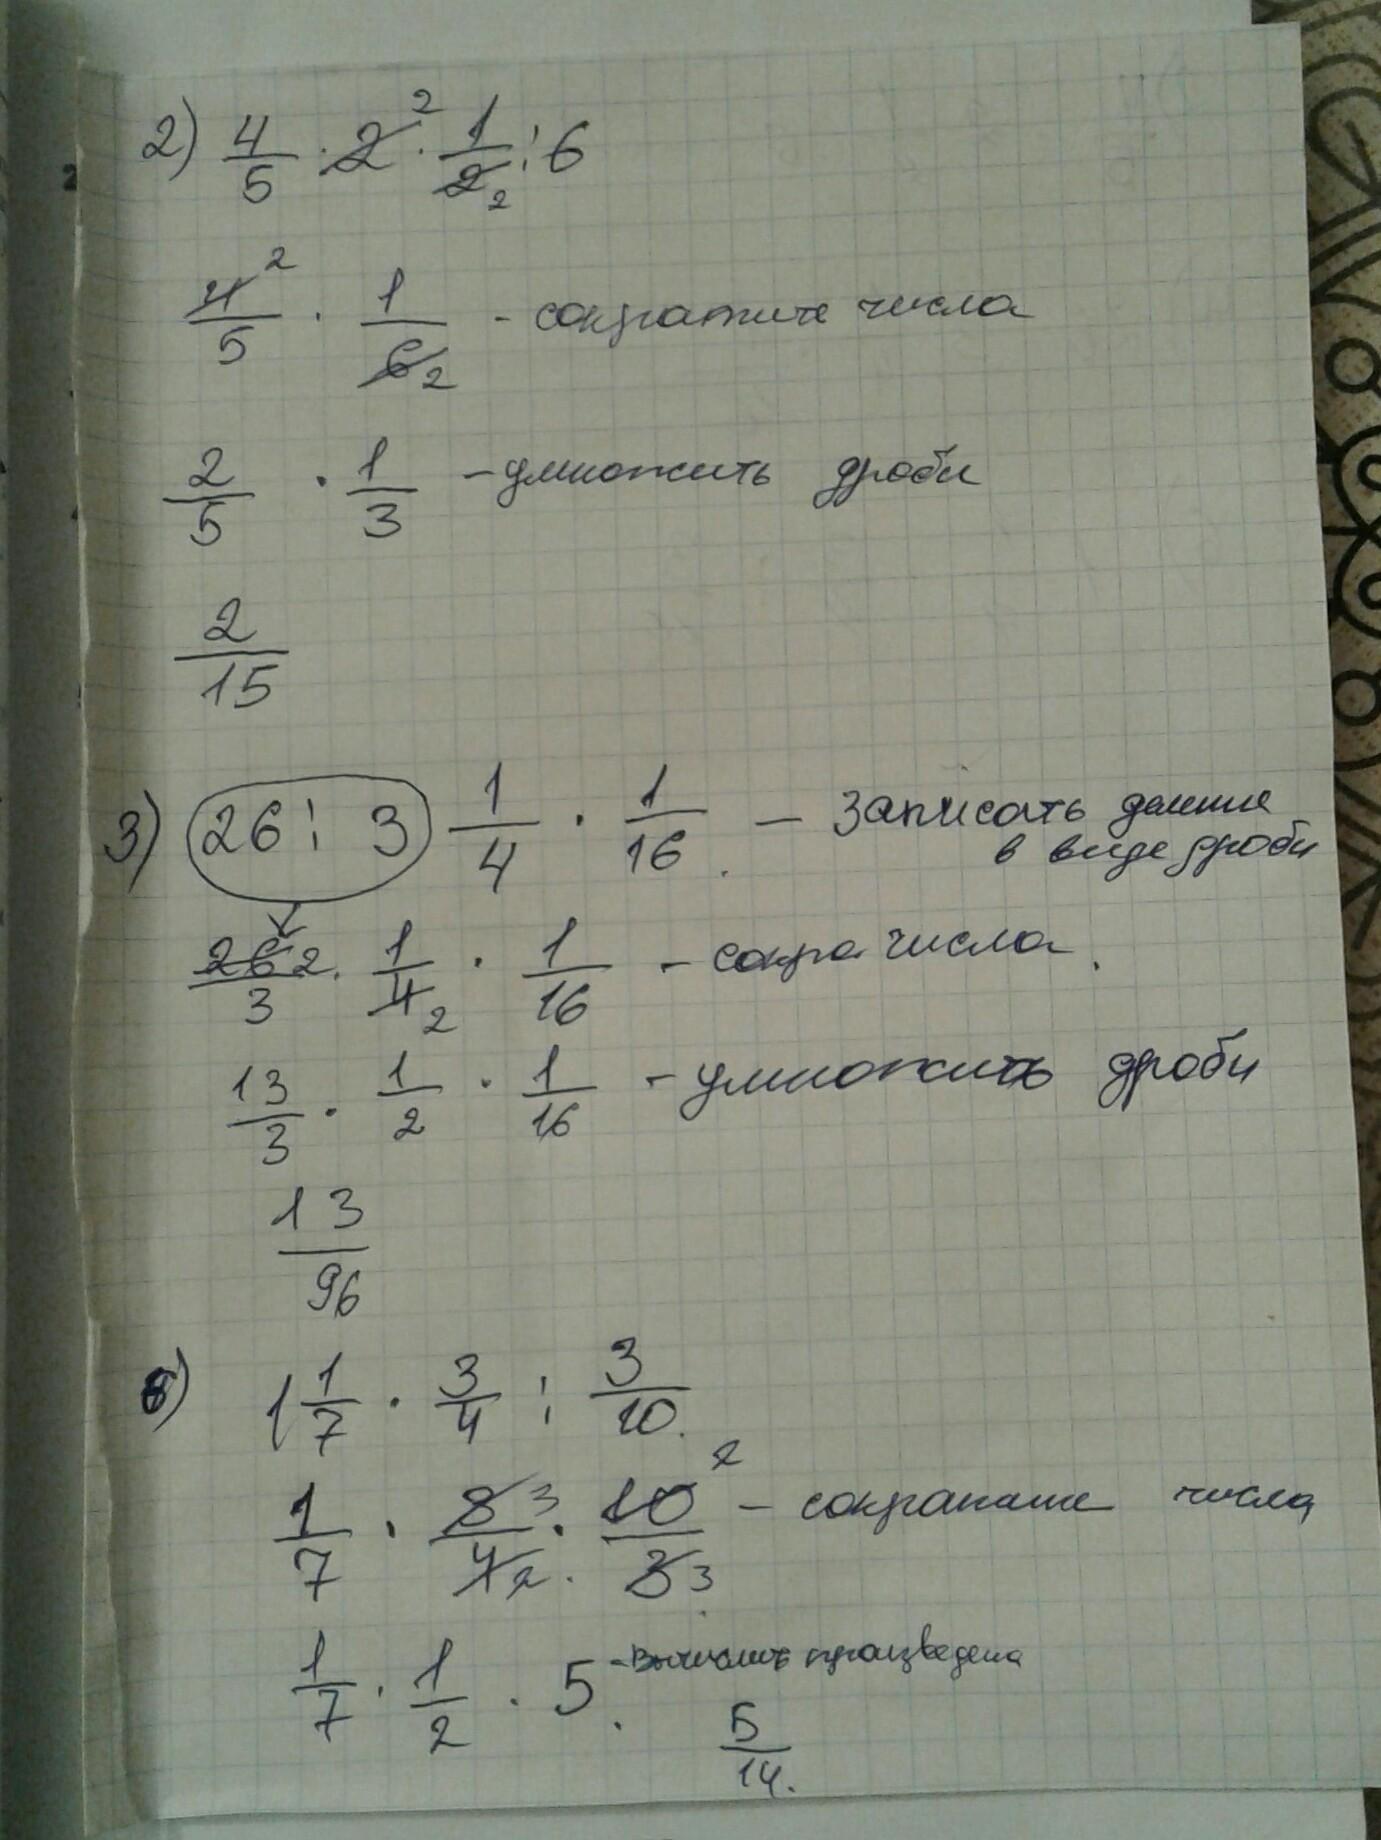 2) 4/5 · 2² · 1/2₂ : 6
4²/5 · 1/6₂ - сократите числа
2/5 · 1/3 - умножить дроби
2/15
3) 26 : 3 1/4 · 1/16 - Записать деление
в виде дроби
26 2/3 · 1/4₂ · 1/16 - сокра числа
13/3 · 1/2 · 1/16 - умножить дроби
13/96
6) 1 1/7 · 3/4 : 3/10
1/7 · 3 3/4₂ · 10²/3₃ - сократите числа
1/7 · 1/2 · 5 - Вычислить произведена
5/14.